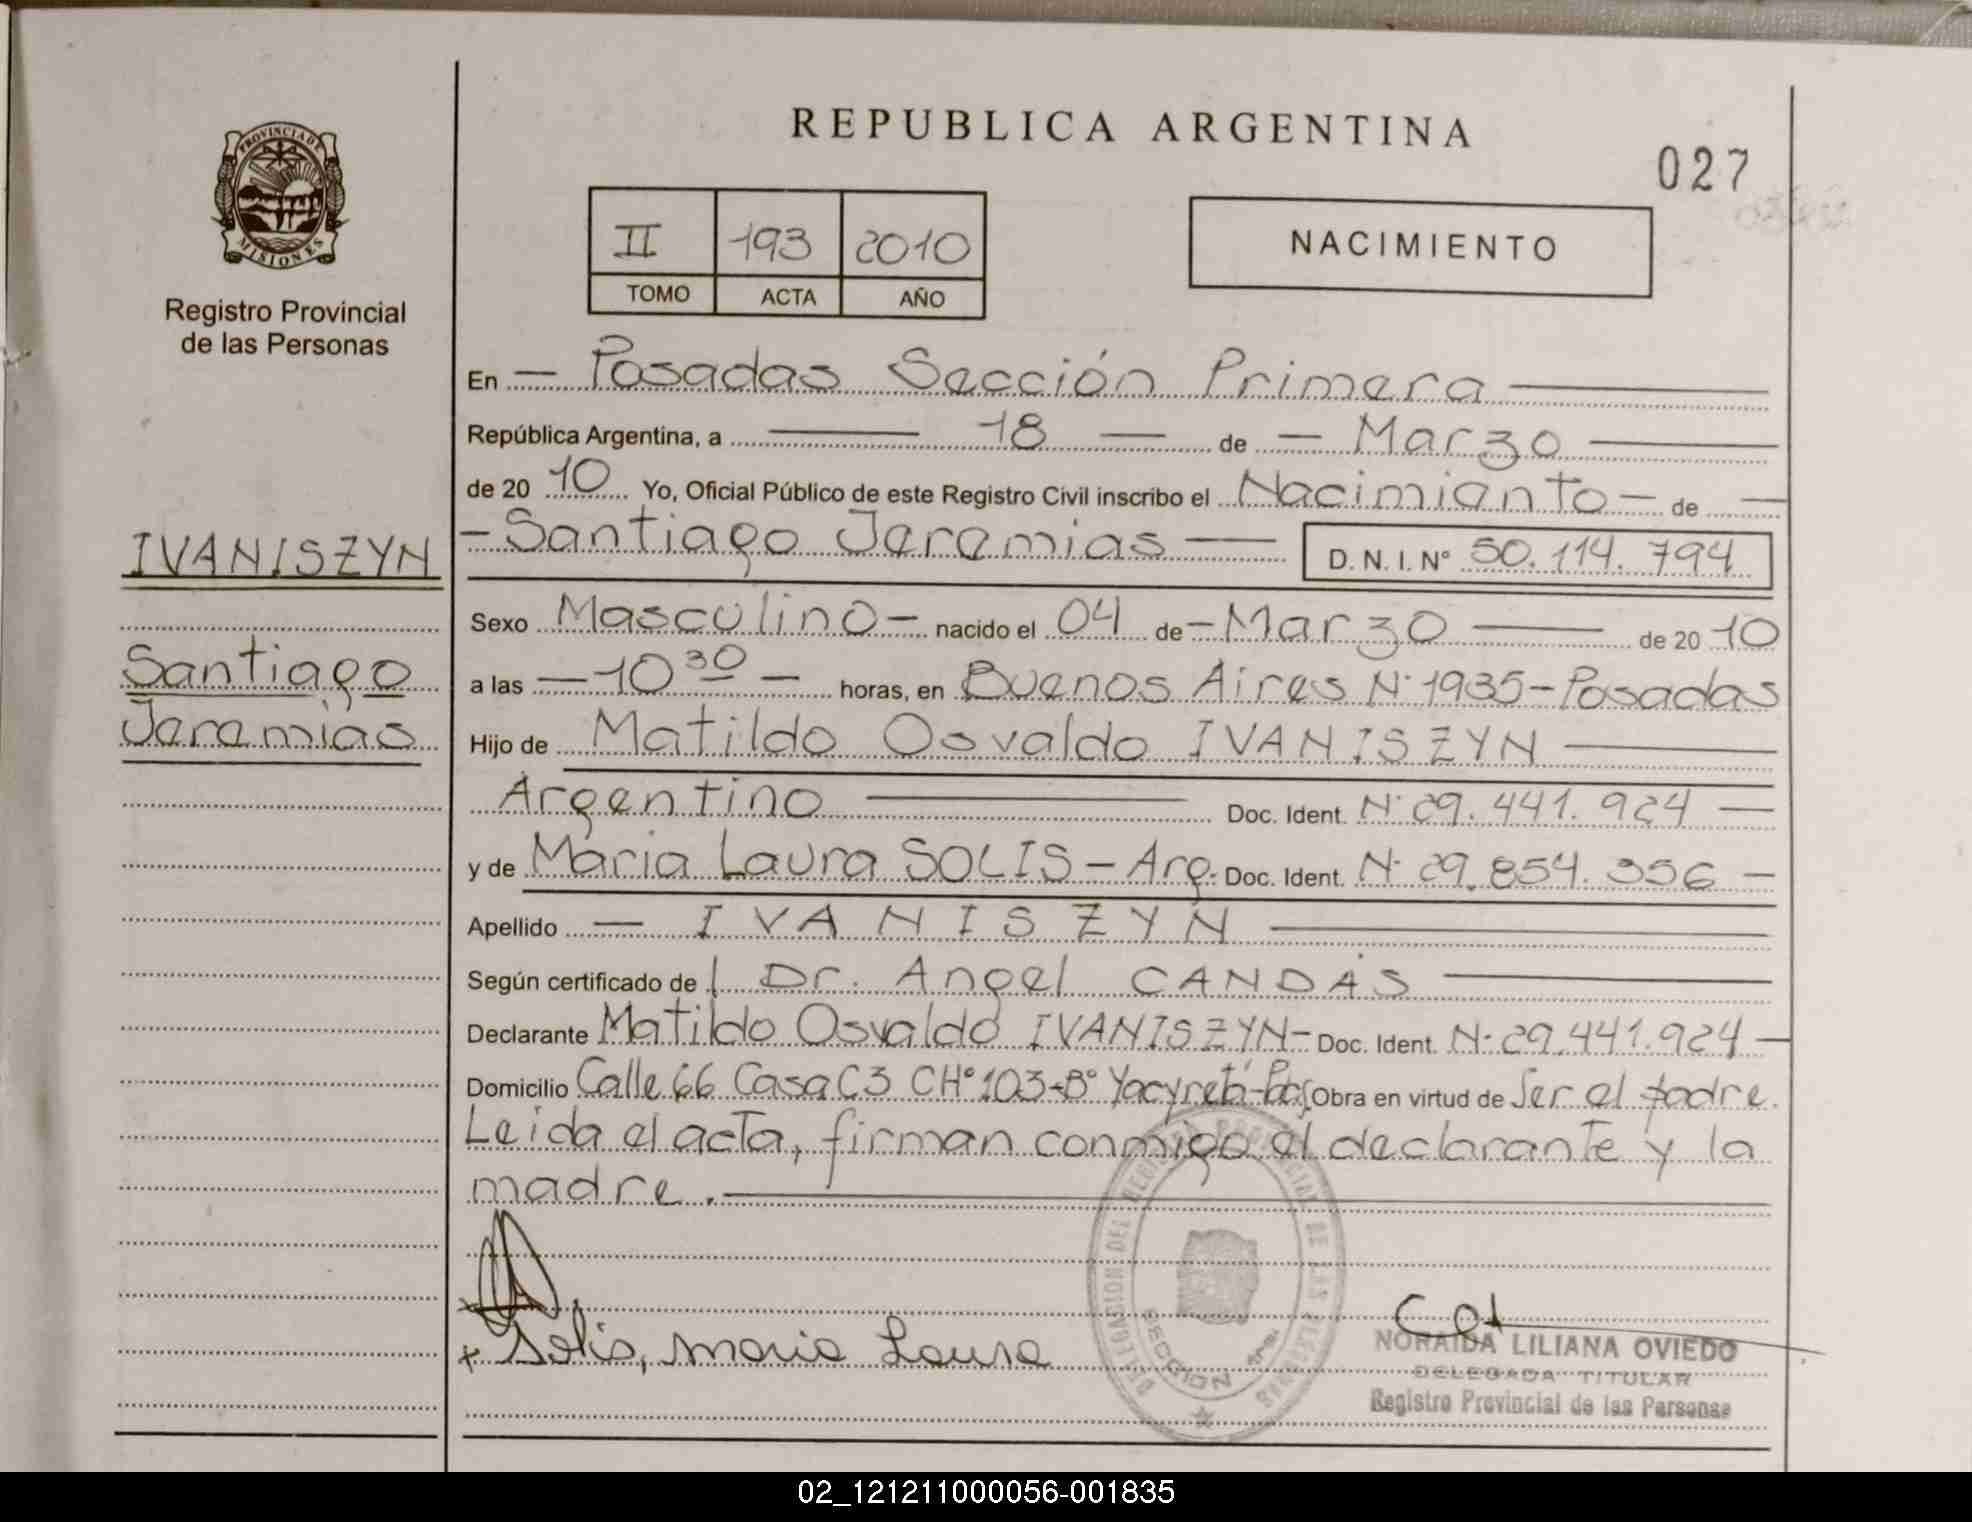 REPUBLICA ARGENTINA
027
PROVINCIA DE
MISIONES
Registro Provincial
de las Personas
II 193 2010
TOMO ACTA AÑO
NACIMIENTO
En — Posadas Sección Primera —
República Argentina, a — 18 — de — Marzo —
de 20 10 Yo, Oficial Público de este Registro Civil inscribo el Nacimiento — de —
— Santiago Jeremias — D. N. I. Nº 50.114.794
IVANISZYN
Santiago
Jeremias
Sexo Masculino — nacido el 04 de — Marzo — de 20 10
a las — 10 30 — horas, en Buenos Aires Nº 1935 - Posadas
Hijo de Matildo Osvaldo IVANISZYN —
Argentino — Doc. Ident. Nº 29.441.924 —
y de Maria Laura SOLIS - Arg. Doc. Ident. Nº 29.854.356 —
Apellido — IVANISZYN —
Según certificado de Dr. Angel CANDAS —
Declarante Matildo Osvaldo IVANISZYN - Doc. Ident. Nº 29.441.924 —
Domicilio Calle 66 Casa C3 CHº 103 - Bº Yacyretá - Pos. Obra en virtud de Ser el padre.
Leida el acta, firman conmigo el declarante y la
madre. —
Solis, maria Laura
DELEGACION DEL REGISTRO PROVINCIAL DE LAS PERSONAS
SECCION 1ra.
NORAIDA LILIANA OVIEDO
DELEGADA TITULAR
Registro Provincial de las Personas
02_121211000056-001835